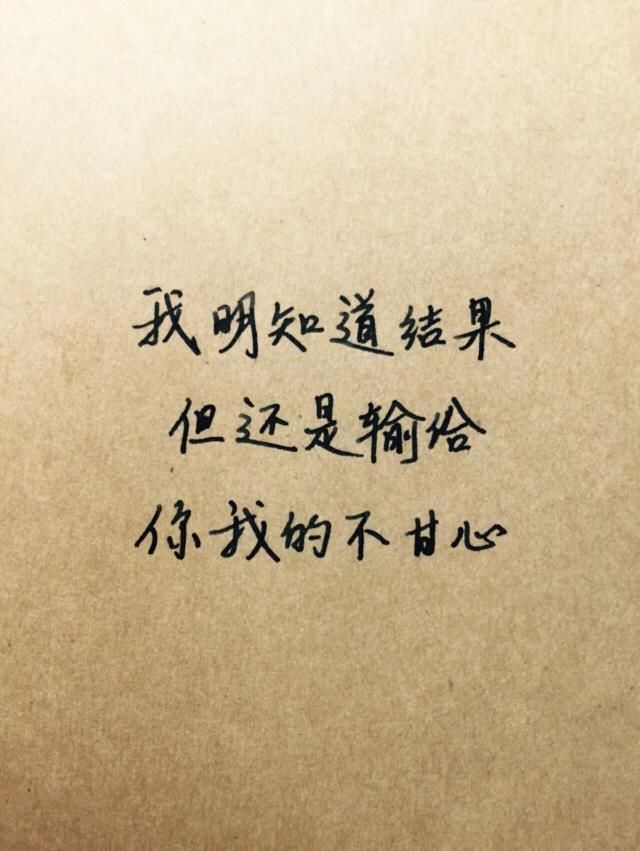 我明知道结果
但还是输给
你我的不甘心